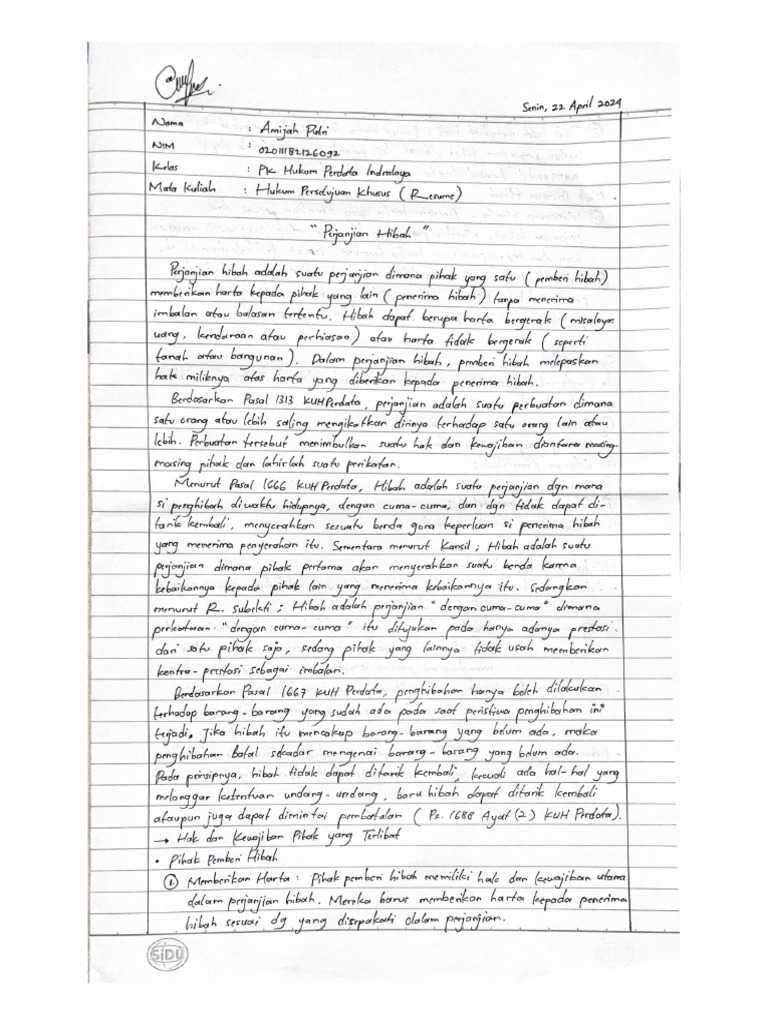 Senin, 22 April 2024
Nama : Amijah Putri
NIM : 02011182126092
Kelas : PK Hukum Perdata Indralaya
Mata Kuliah : Hukum Persetujuan Khusus (Resume)
"Perjanjian Hibah"
Perjanjian hibah adalah suatu perjanjian dimana pihak yang satu (pemberi hibah)
memberikan harta kepada pihak yang lain (penerima hibah) tanpa menerima
imbalan atau balasan tertentu. Hibah dapat berupa harta bergerak (misalnya
uang, kendaraan atau perhiasan) atau harta tidak bergerak (seperti
tanah atau bangunan). Dalam perjanjian hibah, pemberi hibah melepaskan
hak miliknya atas harta yang diberikan kepada penerima hibah.
Berdasarkan Pasal 1313 KUHPerdata, perjanjian adalah suatu perbuatan dimana
satu orang atau lebih saling mengikatkan dirinya terhadap satu orang lain atau
lebih. Perbuatan tersebut menimbulkan suatu hak dan kewajiban diantara masing-
masing pihak dan lahirlah suatu perikatan.
Menurut Pasal 1666 KUH Perdata, Hibah adalah suatu perjanjian dgn mana
si penghibah diwaktu hidupnya, dengan cuma-cuma, dan dgn tidak dapat di-
tarik kembali, menyerahkan sesuatu benda guna keperluan si penerima hibah
yang menerima penyerahan itu. Sementara menurut Kansil ; Hibah adalah suatu
perjanjian dimana pihak pertama akan menyerahkan suatu benda karena
kebaikannya kepada pihak lain yang menerima kebaikannya itu. Sedangkan
menurut R. Subekti ; Hibah adalah perjanjian "dengan cuma-cuma" dimana
perkataan "dengan cuma-cuma" itu ditujukan pada hanya adanya prestasi
dari satu pihak saja, sedang pihak yang lainnya tidak usah memberikan
kontra-prestasi sebagai imbalan.
Berdasarkan Pasal 1667 KUH Perdata, penghibahan hanya boleh dilakukan
terhadap barang-barang yang sudah ada pada saat peristiwa penghibahan ini
terjadi. Jika hibah itu mencakup barang-barang yang belum ada, maka
penghibahan batal sekadar mengenai barang-barang yang belum ada.
Pada prinsipnya, hibah tidak dapat ditarik kembali, kecuali ada hal-hal yang
melanggar ketentuan undang-undang, baru hibah dapat ditarik kembali
ataupun juga dapat dimintai pembatalan (Ps. 1688 Ayat (2) KUH Perdata).
→ Hak dan Kewajiban Pihak yang Terlibat
• Pihak Pemberi Hibah
① Memberikan Harta : Pihak pemberi hibah memiliki hak dan kewajiban utama
dalam perjanjian hibah. Mereka harus memberikan harta kepada penerima
hibah sesuai dg yang disepakati dalam perjanjian.
SiDU